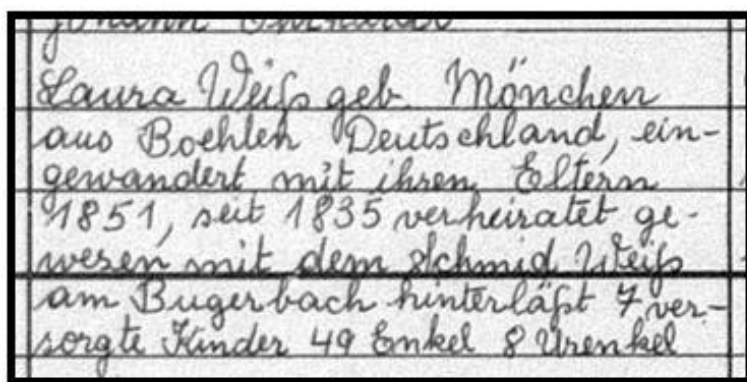 Johann
Laura Weiß geb. Mönchen
aus Boehlen Deutschland, ein-
gewandert mit ihren Eltern
1851, seit 1835 verheiratet ge-
wesen mit dem Schmid Weiß
am Bugerbach hinterläßt 7 ver-
sorgte Kinder 49 Enkel 8 Urenkel